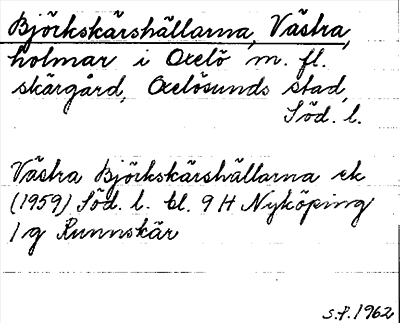 Björkskärshällarna, Västra,
holmar i Oxelö m. fl.
skärgård, Oxelösunds stad,
Söd. l.
Västra Björkskärshällarna ek
(1959) Söd. l. bl. 9 H Nyköping
1 g Runnskär
S.F. 1962